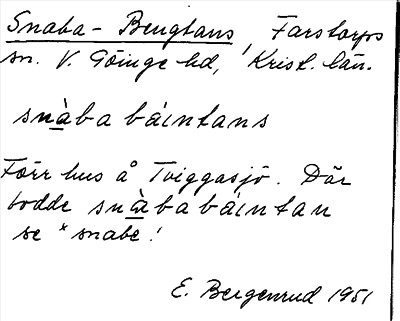 Snaba-Bengtans, Farstorps
sn. V. Göinge hd, Krist. län.
snàba báintans
Förr hus å Tviggasjö. Där
bodde snàba báintan
se * snabe!
E. Bergenrud 1951